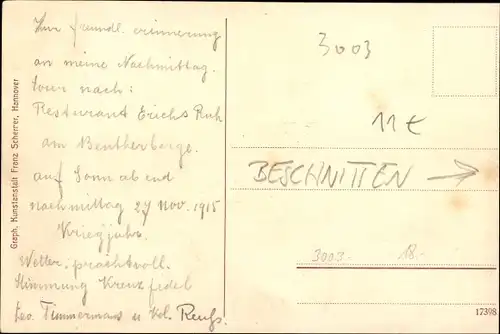 Zur freundl. erinnerung
an meine Nachmittag.
tour nach:
Restaurant Erichs Ruh
am Bentherberge.
auf Sonnabend
nachmittag 27 Nov. 1915
Kriegjahr.
Wetter prachtvoll.
Stimmung Kreuzfidel
Leo. Timmermans u
Graph. Kunstanstalt Franz Scherrer, Hannover
3003
11 €
BESCHNITTEN →
3003 18.-
17398